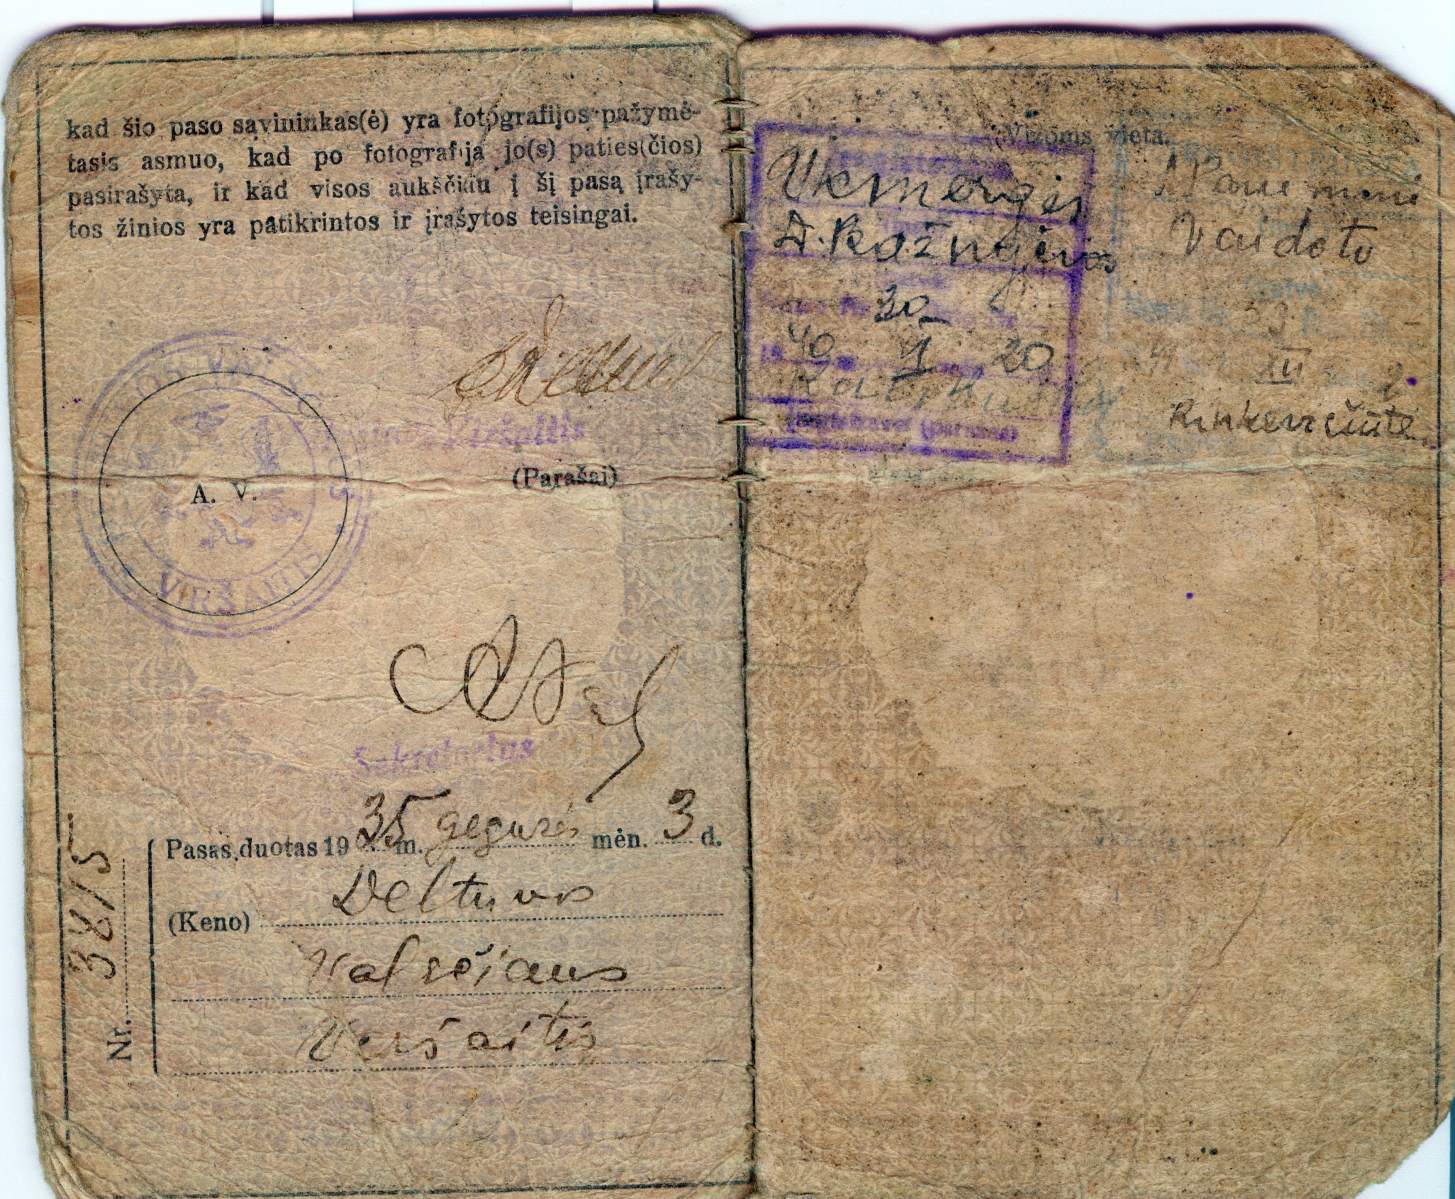 kad šio paso savininkas(ė) yra fotografijos pažymė-
tasis asmuo, kad po fotografija jo(s) paties(čios)
pasirašyta, ir kad visos aukščiau į šį pasą įrašy-
tos žinios yra patikrintos ir įrašytos teisingai.
Viršaitis
(Parašai)
A. V.
VIRŠAITIS
Sekretorius
Pasas duotas 1935 m. gegužės mėn. 3 d.
(Keno) Deltuvos
Valsčiaus
Viršaitis
Nr. 3815
(Vizoms vieta.
Ukmergės
D. Bažnyčios
30
19 40 1 20
(parašas)
Panemunė
Vaidoto
33
41 XII 2
Rinkevičiūtė